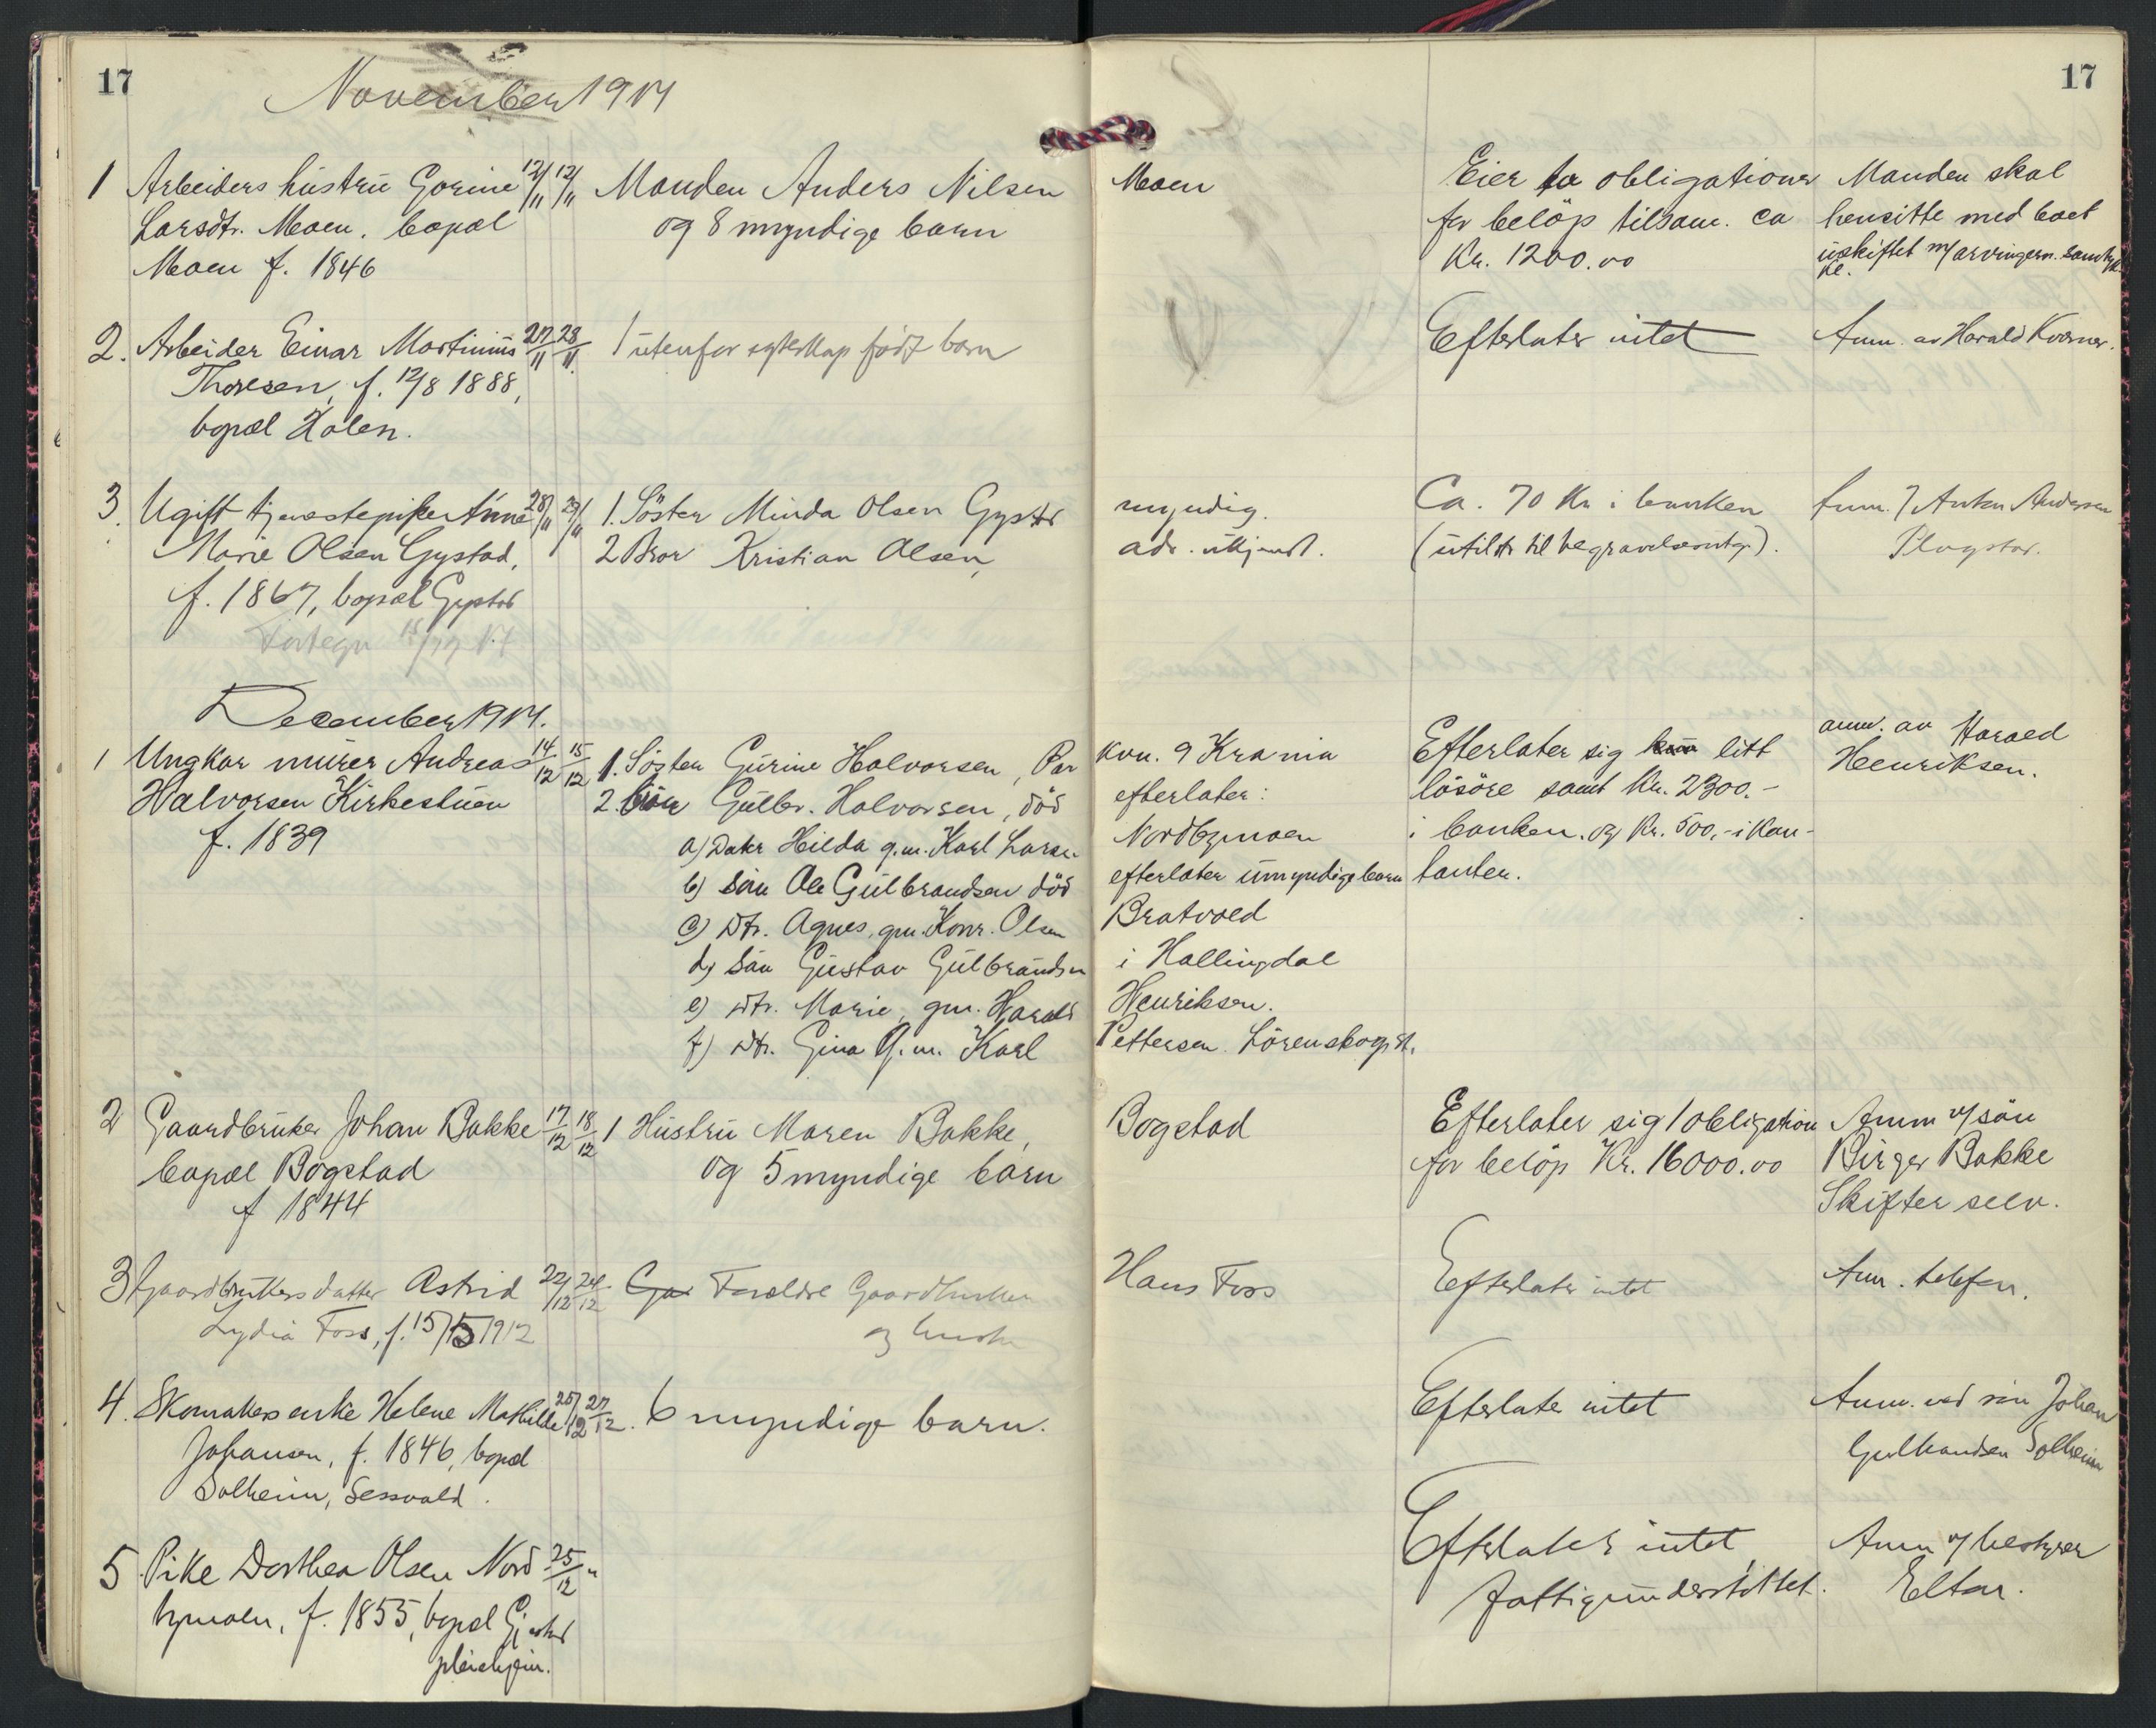 17
November 1917
17
1 Arbeiders hustru Gorine 12/11 12/11 Manden Anders Nilsen Moen Eier to obligationer Manden skal
Larsdtr. Moen. bopæl og 8 myndige barn for beløp tilsam. ca hensitte med boet
Moen f. 1846 Kr. 1200.00 uskiftet m/ arvingern. samtyk-
ke.
2. Arbeider Einar Martinius 27/11 28/11. 1 utenfor egteskap født barn Efterlater intet Anm. av Harald Kværner.
Thoresen, f. 12/8 1888,
bopæl Holen.
3. Ugift tjenestepike Anna 28/11 29/11 1. Søster Minda Olsen Gystad myndig. Ca. 70 Kr i banken Anm. Anton Andersen
Marie Olsen Gystad, 2 Bror Kristian Olsen, adr. ukjendt. (utilstr. til begravelsesomkg.). Plogstad.
f. 1867, bopæl Gystad
December 1917.
1 Ungkar murer Andreas 14/12 15/12 1. Søster Gurine Halvorsen, Par kvn. 9 Krania Efterlater sig litt anm. av Harald
Halvorsen Kirkestuen 2. Gulbr. Halvorsen, død efterlater: løsøre samt Kr. 2300.- Henriksen.
f. 1839 a) Datr Hilda g.m. Karl Larsen Nordbymoen i banken. og Kr. 500,- i kon-
b) Søn Ole Gulbrandsen død efterlater umyndige barn tanter.
c) Dtr. Agnes, gm. Konr. Olsen Bratvold
d) Søn Gustav Gulbrandsen i Hallingdal
e) Dtr. Marie, gm. Harald Henriksen.
f) Dtr. Gina g.m. Karl Pettersen Lörenskog st.
2 Gaardbruker Johan Bakke 17/12 18/12 1 Hustru Maren Bakke, Bogstad Efterlater sig 1 obligation Anm v/ søn
bopæl Bogstad og 5 myndige barn for beløp Kr. 16000.00 Birger Bakke
f 1844 Skifter selv.
3 Gaardbrukers datter Astrid 22/12 24/12 Foreldre Gaardbruker Hans Foss Efterlater intet Anm. telefon.
Lydia Foss, f. 15/5 1912 og hustru
4. Skomakers enke Helene Mathilde 25/12 27/12. 6 myndige barn. Efterlater intet Anm. ved søn Johan
Johansen, f. 1846, bopæl Gulbrandsen Solheim
Solheim, Sessvold.
5. Pike Dorthea Olsen Nord- 25/12 " Efterlater intet, Anm v/ bestyrer
bymoen, f. 1855, bopæl Gjestad fattigunderstøttet. Elton.
pleiehjem.